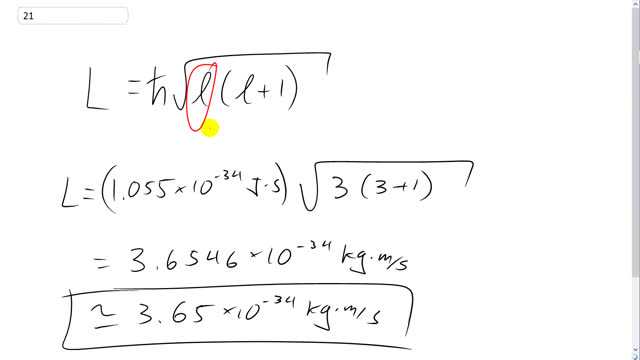 21
L = ħ√ℓ(ℓ+1)
L = (1.055×10⁻³⁴ J·s) √3(3+1)
= 3.6546×10⁻³⁴ kg·m/s
≃ 3.65×10⁻³⁴ kg·m/s